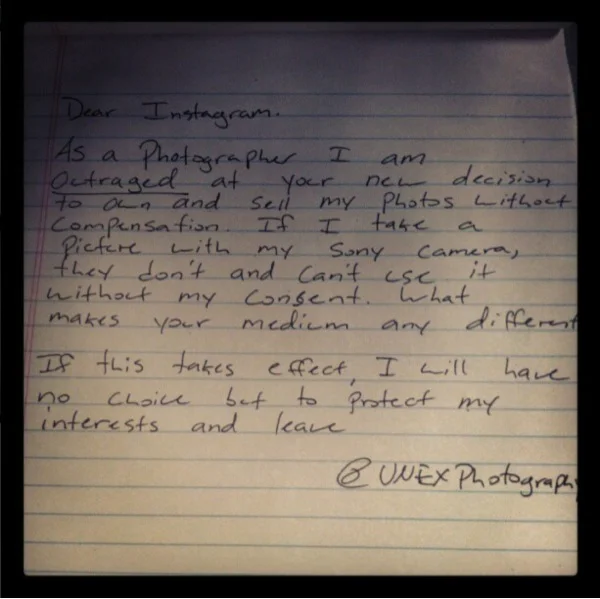 Dear Instagram.
As a Photographer I am
Outraged at your new decision
to own and sell my photos without
Compensation. If I take a
Picture with my Sony camera,
they don't and can't use it
without my consent. What
makes your medium any different
If this takes effect, I will have
no choice but to protect my
interests and leave
@UNEXPhotography